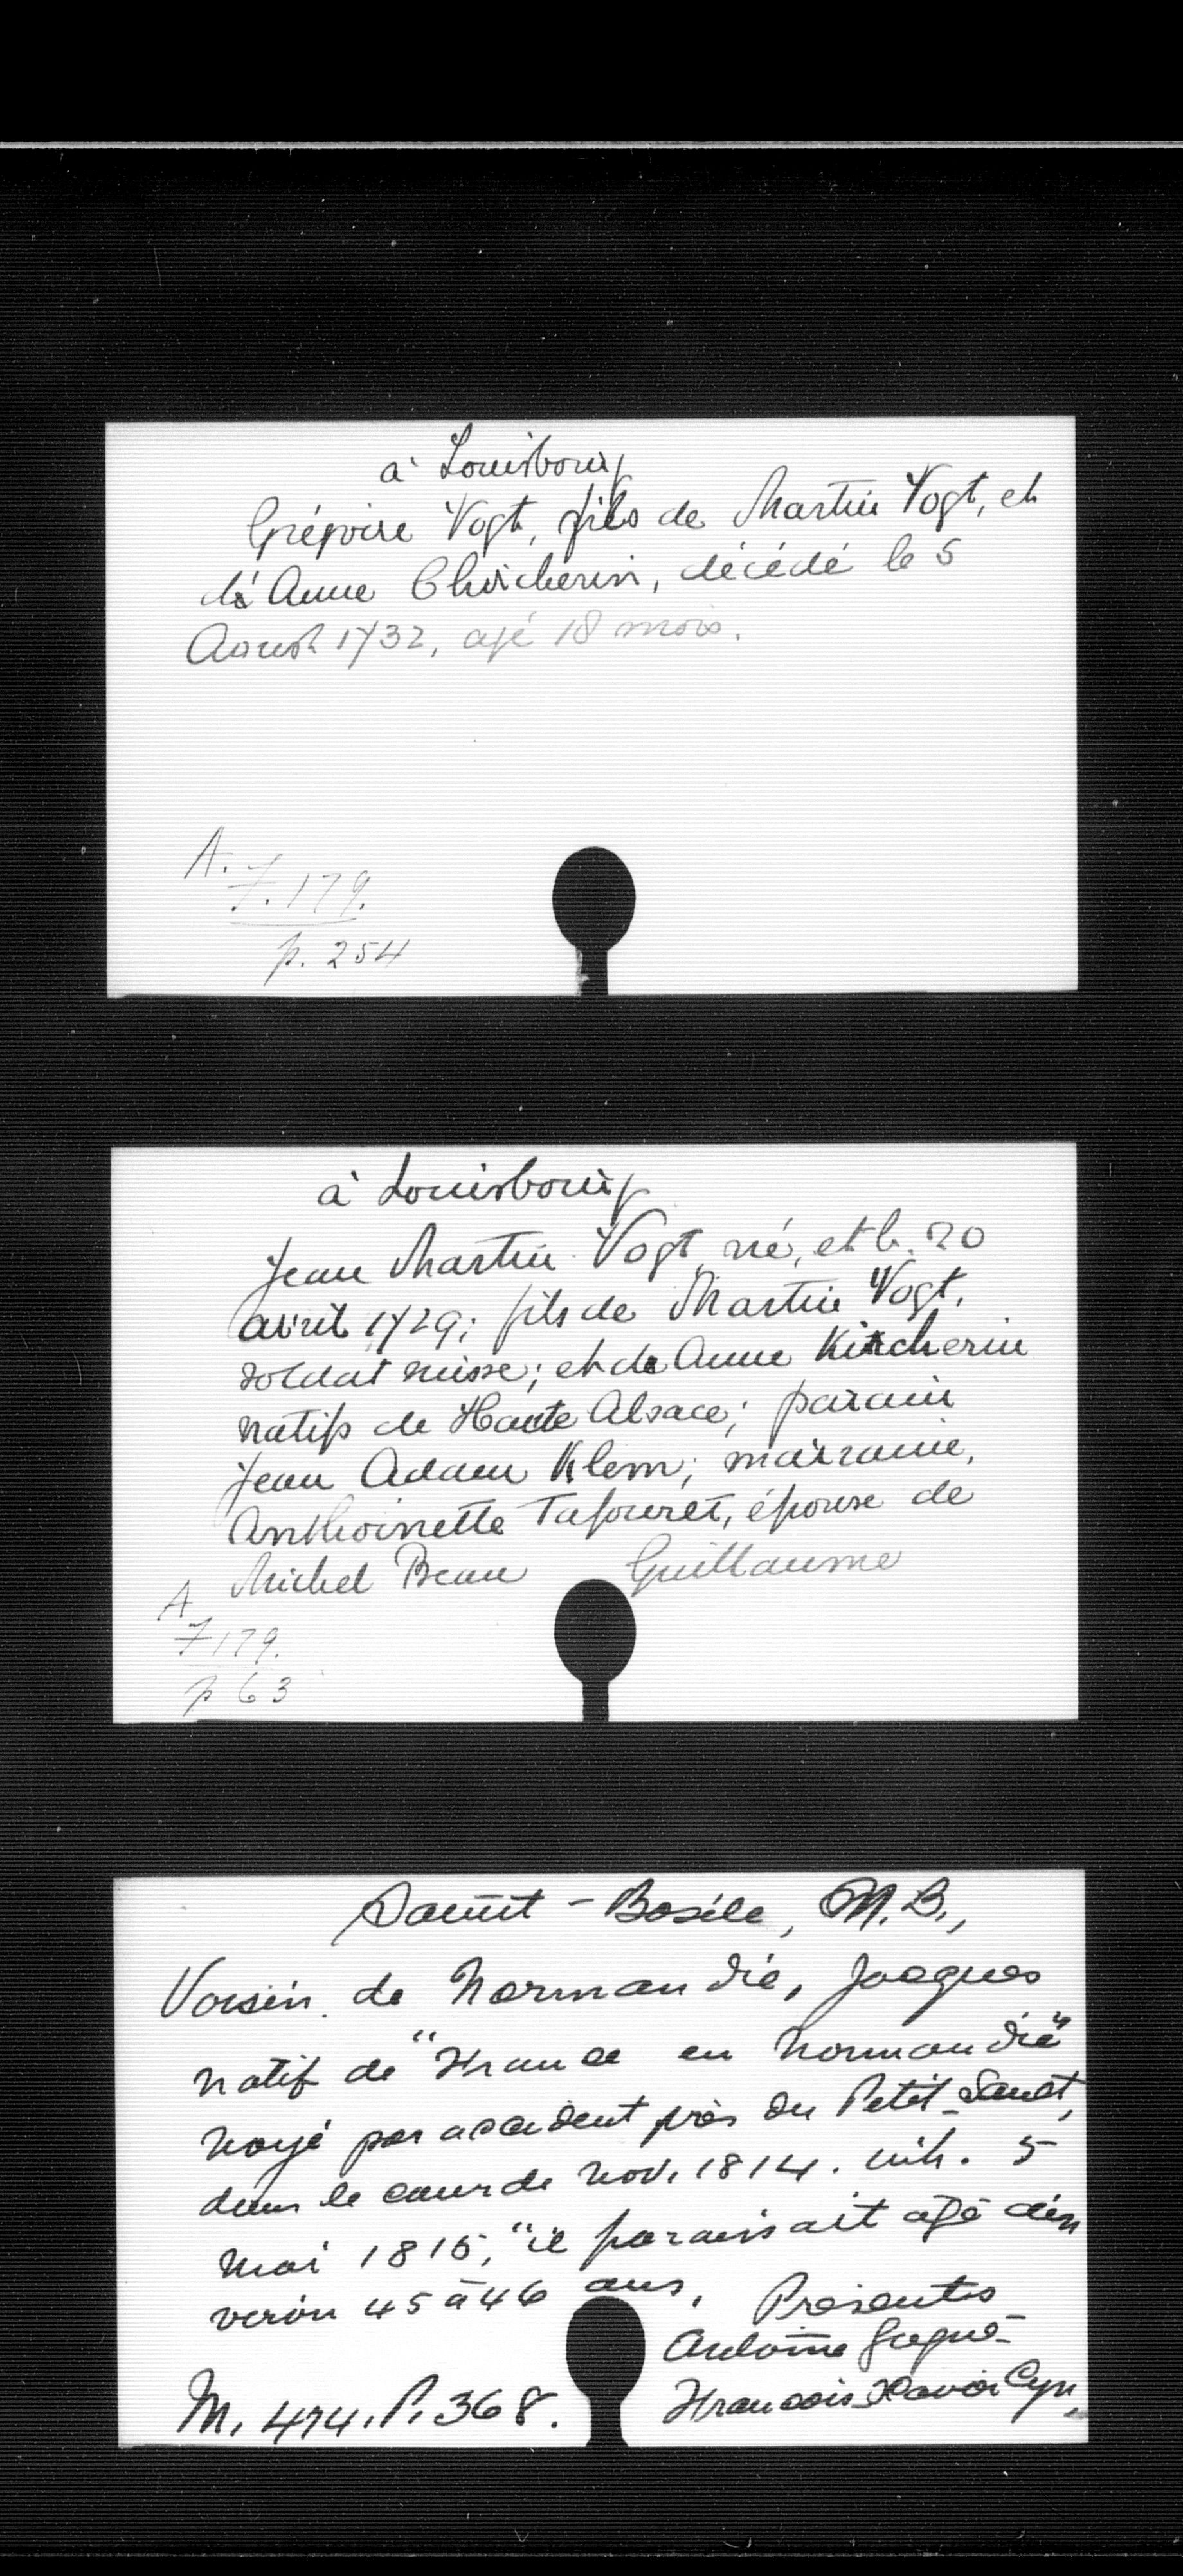 à Louisbourg
Grégoire Vogt, fils de Martin Vogt, et
d'Anne Chvicherin, décédé le 5
Aoust 1732, agé 18 mois.
A.
F. 179.
p. 254
à Louisbourg
Jean Martin Vogt né, et b. 20
avril 1729; fils de Martin Vogt,
soldat suisse; et de Anne Kircherin
natifs de Haute Alsace; parain
Jean Adam Klem; marraine,
Anthoinette Tafouret, épouse de
Michel Beau Guillaume
A
F 179.
p 63
Saint-Basile, N.B.,
Voisin de Normandie, Jacques
natif de "France en Normandie"
noyé par accident près du Petit-Sault,
dans le cour de nov. 1814. inh. 5
mai 1815, "il paraissait agé d'en
veron 45 à 46 ans, Présents
Antoine Gagné
Francois Xavier Cyr,
M. 474. P. 368.